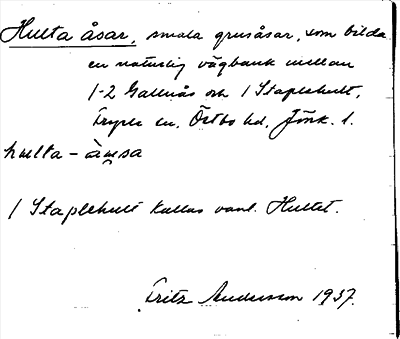 Hulta åsar, smala grusåsar, som bilda
en naturlig vägbank mellan
1-2 Gallnås och 1 Staplehult,
Fryele sn, Östbo hd, Jönk. l.
hulta - å̀u̯sa
1 Staplehult kallas vanl. Hultet.
Fritz Andersson 1937.